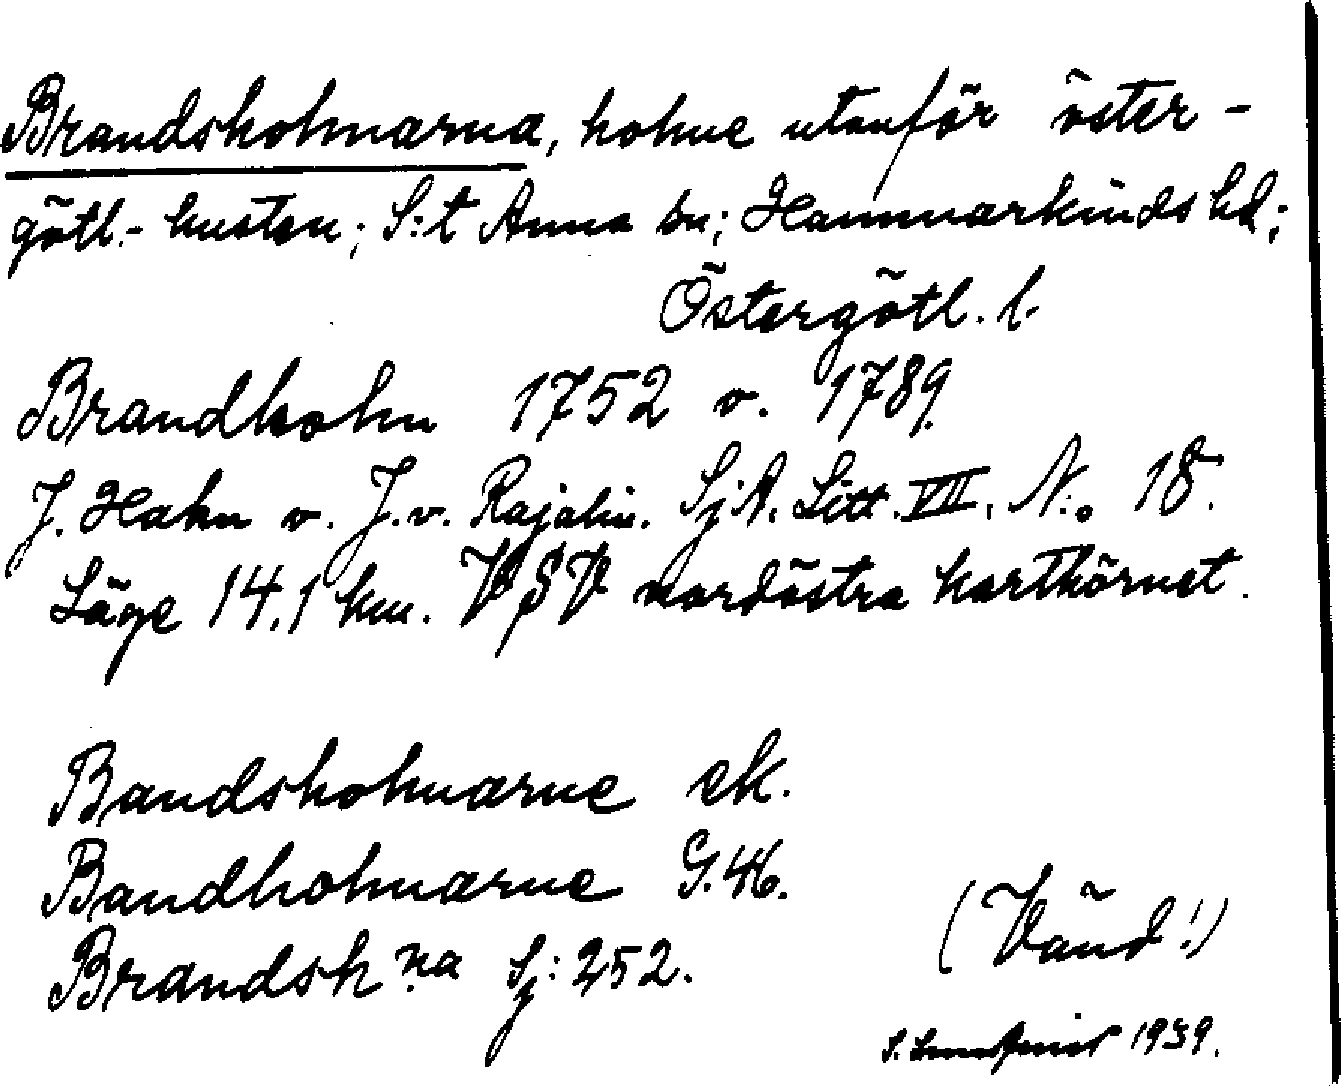 Brandsholmarna, holme utanför öster-
götl.- kusten; S:t Anna sn; Hammarkinds hd;
Östergötl. l.
Brandholm 1752 o. 1789.
J. Hahn o. J. v. Rajalin. SjA. Litt. VII. N:o 18.
Läge 14,1 km. VSV nordöstra karthörnet.
Bandsholmarne ek.
Bandholmarne G.46.
Brandsh na Sj: 252.
(Vänd!)
S. 1939.